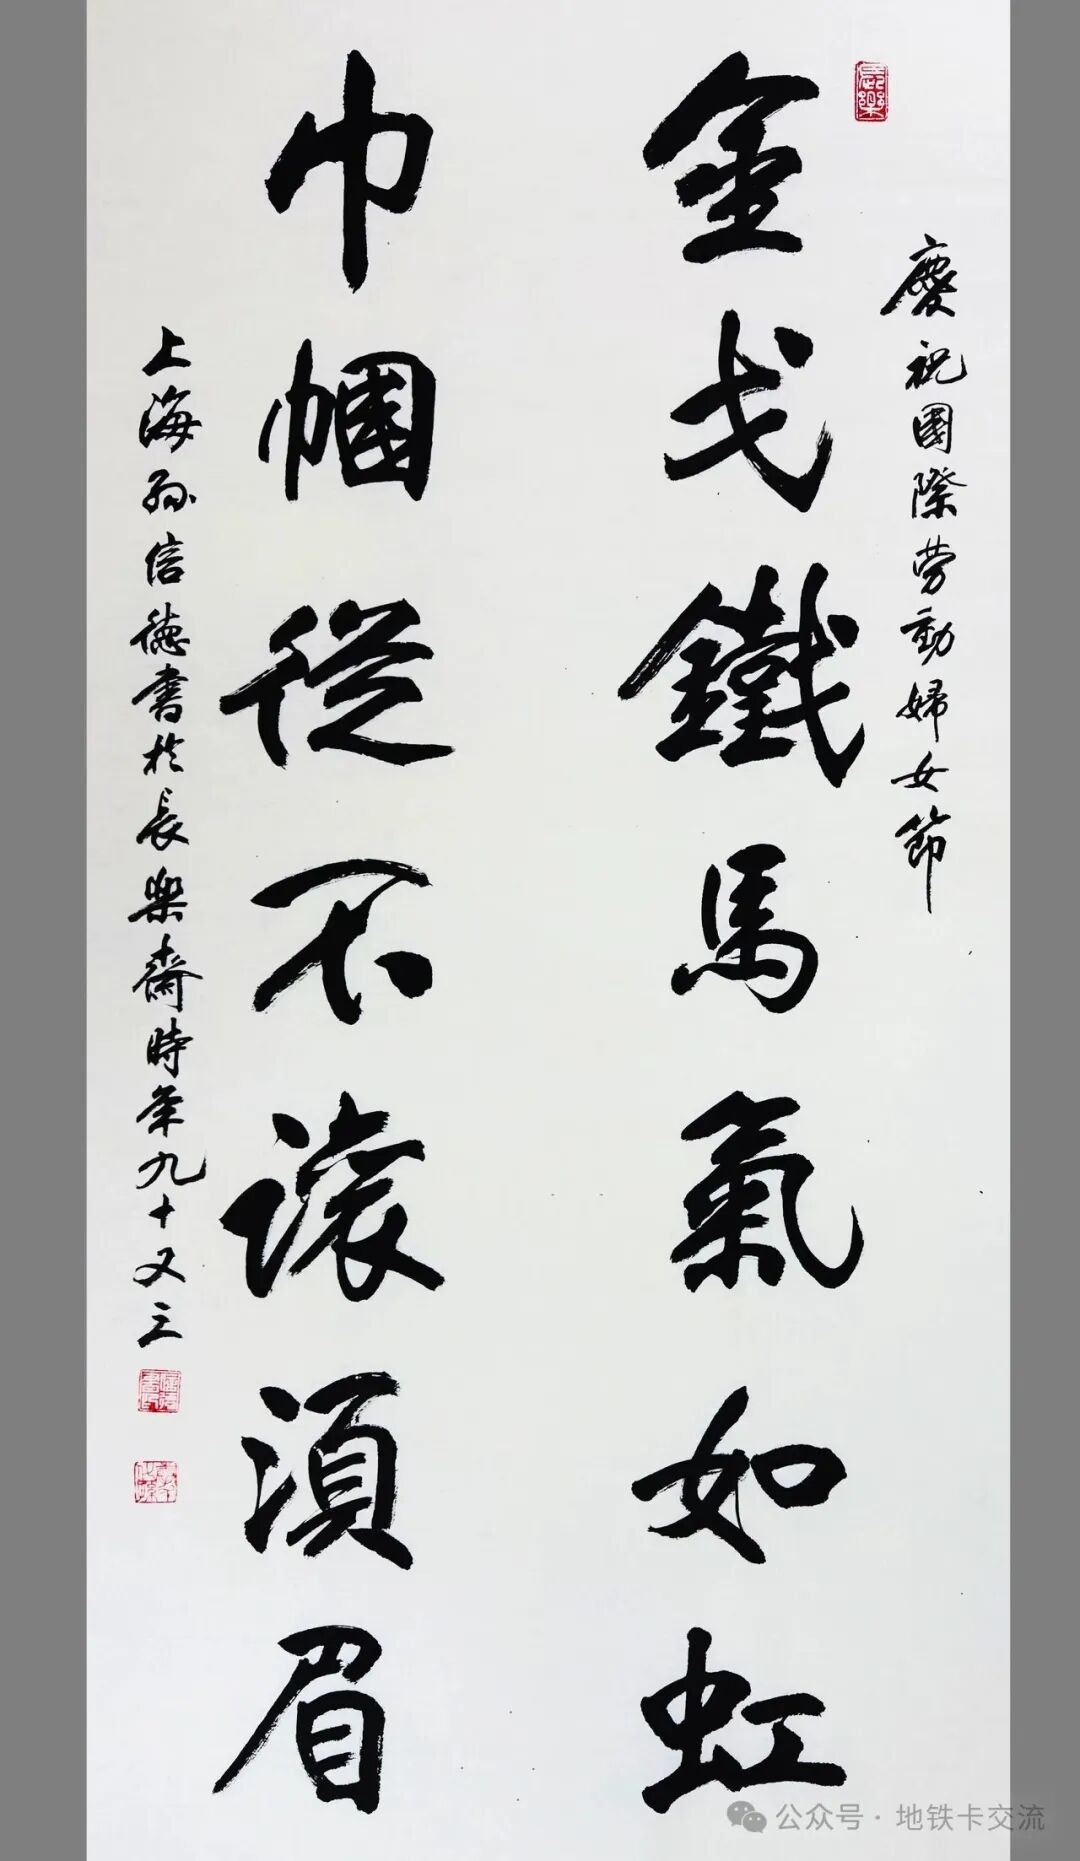 慶祝國際劳動婦女節
金戈鐵馬氣如虹
巾幗從不讓須眉
上海孫信德書於長樂齋時年九十又三
長樂
公众号·地铁卡交流